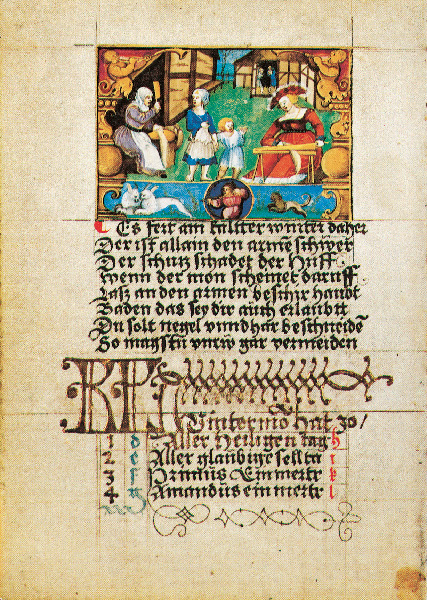 Es feit am kallter winter daher
Der ist allain den arme schwer
Der schutz schadet der Huff
Wenn der mon scheinet daruff
Lasz an den armen
Baden das sey dir auch erlaubtt
Du solt negel vnnd har beschneidē
So magstu vnrw gar vermeiden
KL
Wintermō hat 30
1 d Aller Heiligen tag h
2 e Aller glaubige sell ta i
3 f k
4 g Amandus l